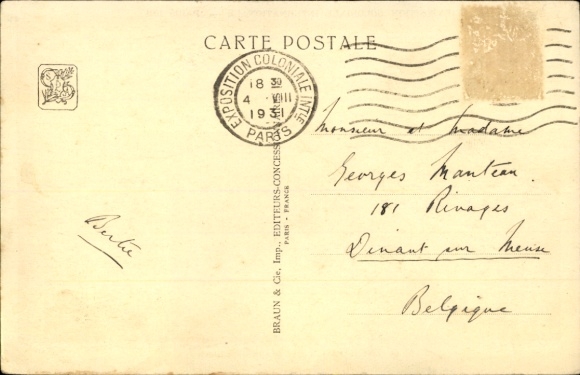 CARTE POSTALE
EXPOSITION COLONIALE INTLE
18 30
4 VIII
1931
PARIS
Monsieur et Madame
Georges Manteau.
181 Rivages
Dinant sur Meuse
Belgique
Bertie
BRAUN & Cie, Imp., EDITEURS-CONCESS
PARIS - FRANCE